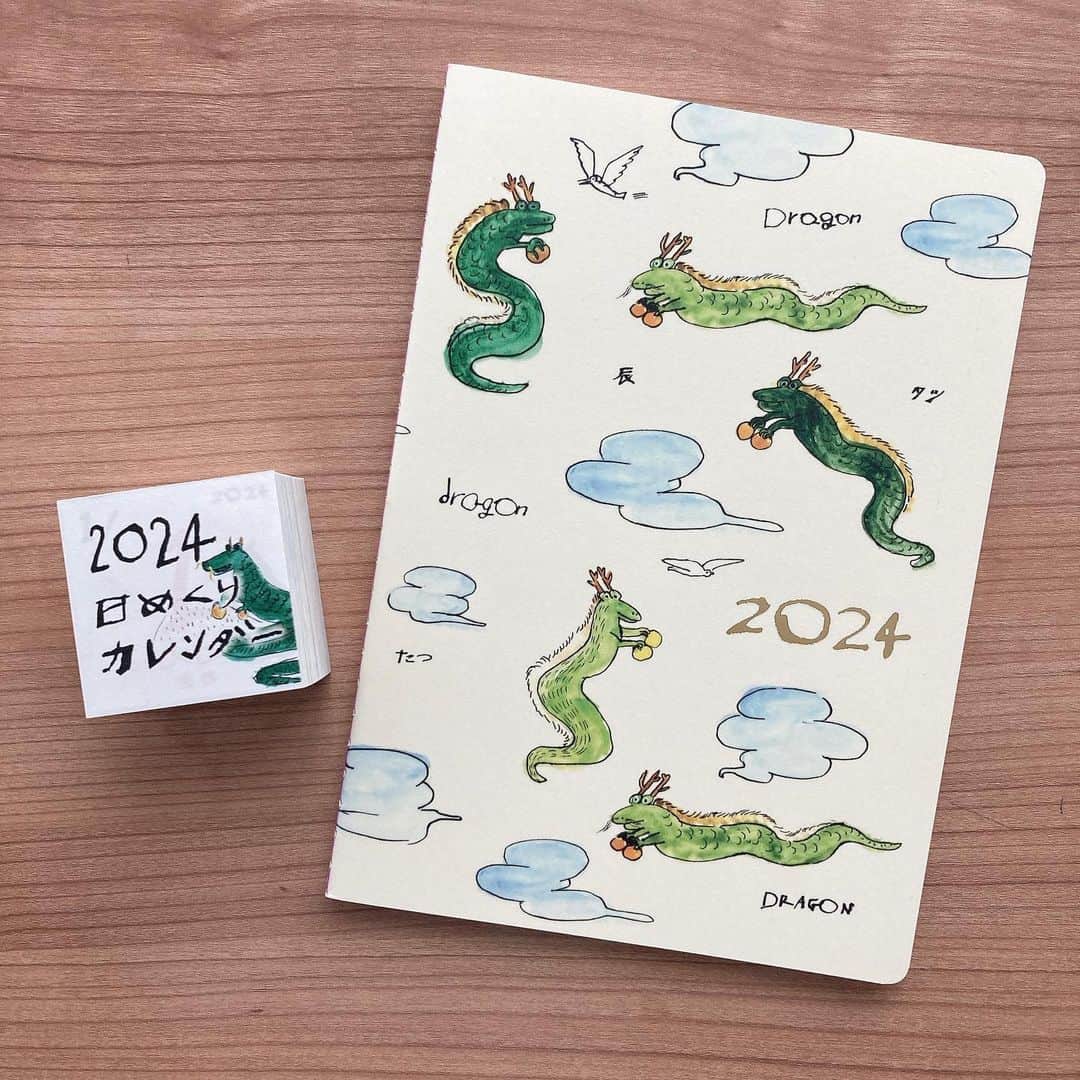 2024
日めくり
カレンダー
Dragon
辰
タツ
dragon
2024
たつ
DRAGON